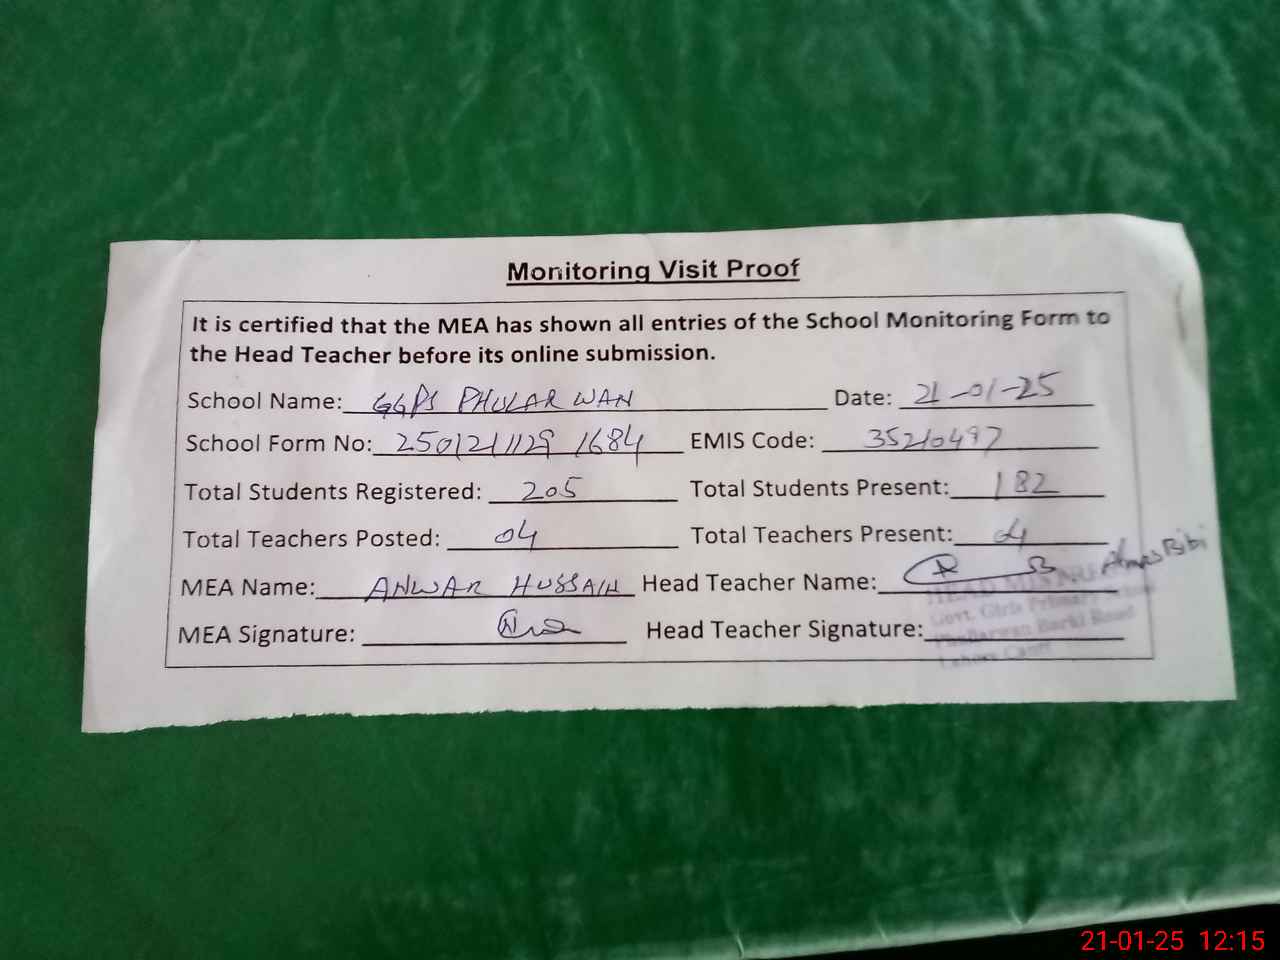 Monitoring Visit Proof
It is certified that the MEA has shown all entries of the School Monitoring Form to
the Head Teacher before its online submission.
School Name: GGPS PHULARWAN Date: 21-01-25
School Form No: 250121129 1684 EMIS Code: 35210497
Total Students Registered: 205 Total Students Present: 182
Total Teachers Posted: 04 Total Teachers Present: 04
MEA Name: ANWAR HUSSAIN Head Teacher Name: Bibi
MEA Signature: Head Teacher Signature:
HEAD MISTRESS
Govt. Girls Primary
Phullarwan Barki Road
Lahore Cantt
21-01-25 12:15